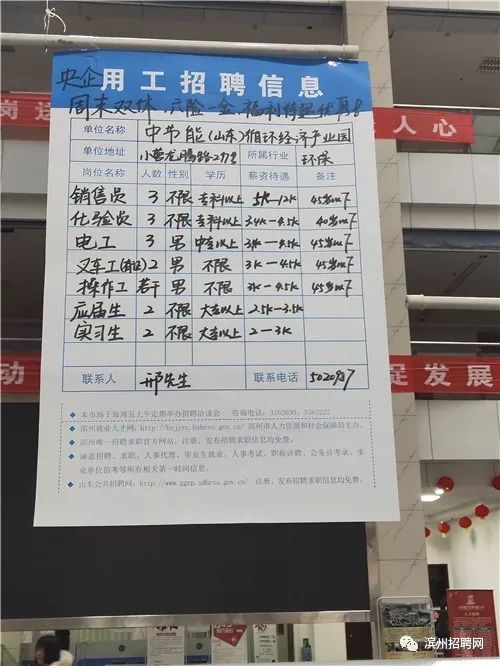 央企用工招聘信息
周末双休 六险一金 福利待遇优厚!
岗
人心
单位名称 中节能(山东)循环经济产业园
单位地址 小营龙腾路27号 所属行业 环保
岗位名称 人数 性别 学历 薪资待遇 备注
销售员 3 不限 专科以上 5K-12K 45岁以下
化验员 3 不限 专科以上 3.4K-4.5K 40岁以下
电工 3 男 中专以上 3.4K-4.5K 45岁以下
叉车工(有证) 2 男 不限 3K-4.5K 45岁以下
操作工 若干 男 不限 3K-4.5K 45岁以下
应届生 2 不限 大专以上 2.5K-3.5K
实习生 2 不限 大专以上 2-3K
动
促发展
联系人 邢先生 联系电话
◆ 本市场于每周五上午定期举办招聘洽谈会 咨询电话:3162630、3363222
◆ 滨州就业人才网:http://bzjyrc.bzhrss.gov.cn/ 滨州市人力资源和社会保障局主办。
◆ 滨州唯一招聘求职官方网站,注册、发布招聘求职信息均免费。
◆ 涵盖招聘、求职、人事代理、毕业生就业、人事考试、职称评聘、公务员考录、事
业单位招考等所有相关第一时间信息。
◆ 山东公共招聘网:http://www.ggzp.sdhrss.gov.cn/ 注册、发布招聘求职信息均免费。
滨州招聘网